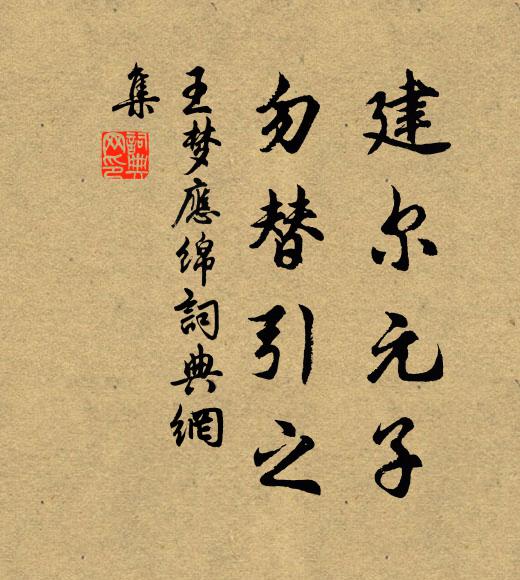 建尔元子
勿替引之
王梦應绵詞典網
集
詞典
网印